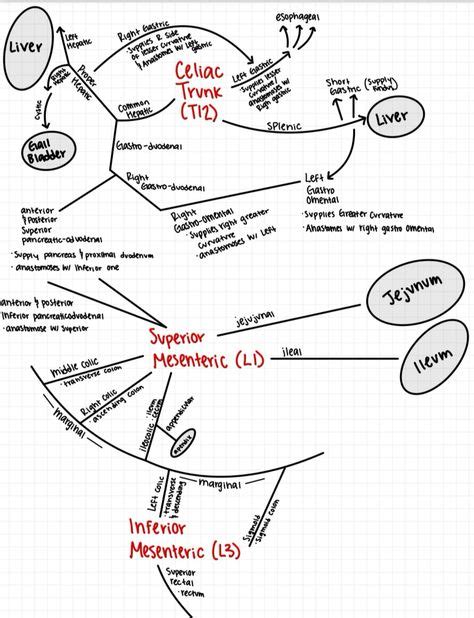 esophageal
Right Gastric
· Supplies R. Side
of lesser curvature
& Anastomoses w/ Left
gastric
Liver
Left
Hepatic
Right
Hepatic
Proper
Hepatic
Cystic
Gall
Bladder
Common
Hepatic
Celiac
Trunk
(T12)
Left Gastric
· Supplies lesser
curvature &
anastomoses w/
Righ gastric
Short
Gastric
(Supply
Fundus)
Splenic
Liver
Gastro-duodenal
Right
Gastro-duodenal
Left
Gastro
Omental
· Supplies Greater Curvature
· Anastomes w/ right gastro omental
Right
Gastro-omental
· Supplies right greater
curvature
· anastomoses w/ Left
anterior
& Posterior
Superior
pancreatic-duodenal
· Supply pancreas & proximal duodenum
· anastomoses w/ Inferior one
anterior & posterior
Inferior pancreaticoduodenal
· anastomose w/ Superior
Superior
Mesenteric (L1)
jejujnal
Jejunum
ileal
Ileum
middle colic
· transverse colon
Right colic
· ascending colon
ileocolic
· ileum
· cecum
appendicular
marginal
Left colic
· transverse
& descending
marginal
Sigmoid
· Sigmoid colon
Inferior
Mesenteric (L3)
Superior
rectal
· rectum